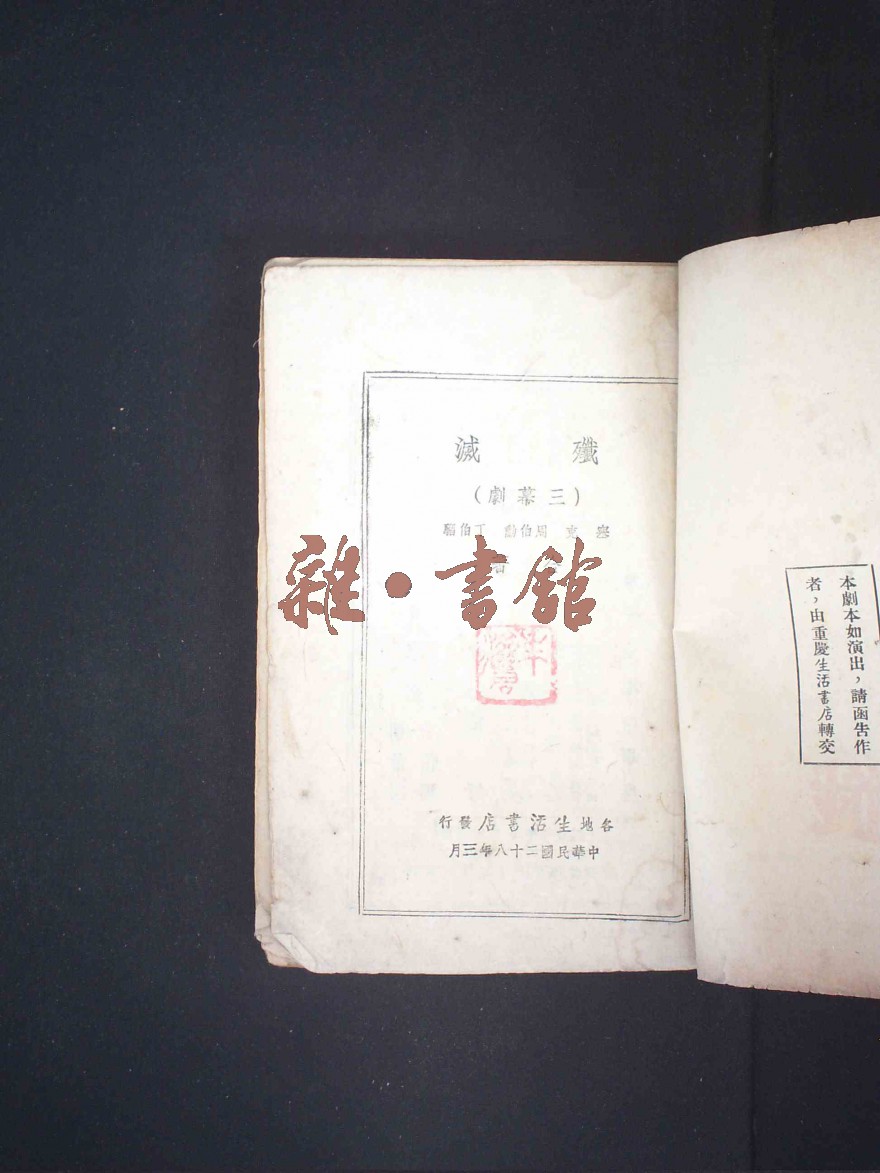 本劇本如演出，請函告作
者，由重慶生活書店轉交
殲滅
（三幕劇）
塞克 周伯勳 丁伯騮
雜·書館
各地生活書店發行
中華民國二十八年三月